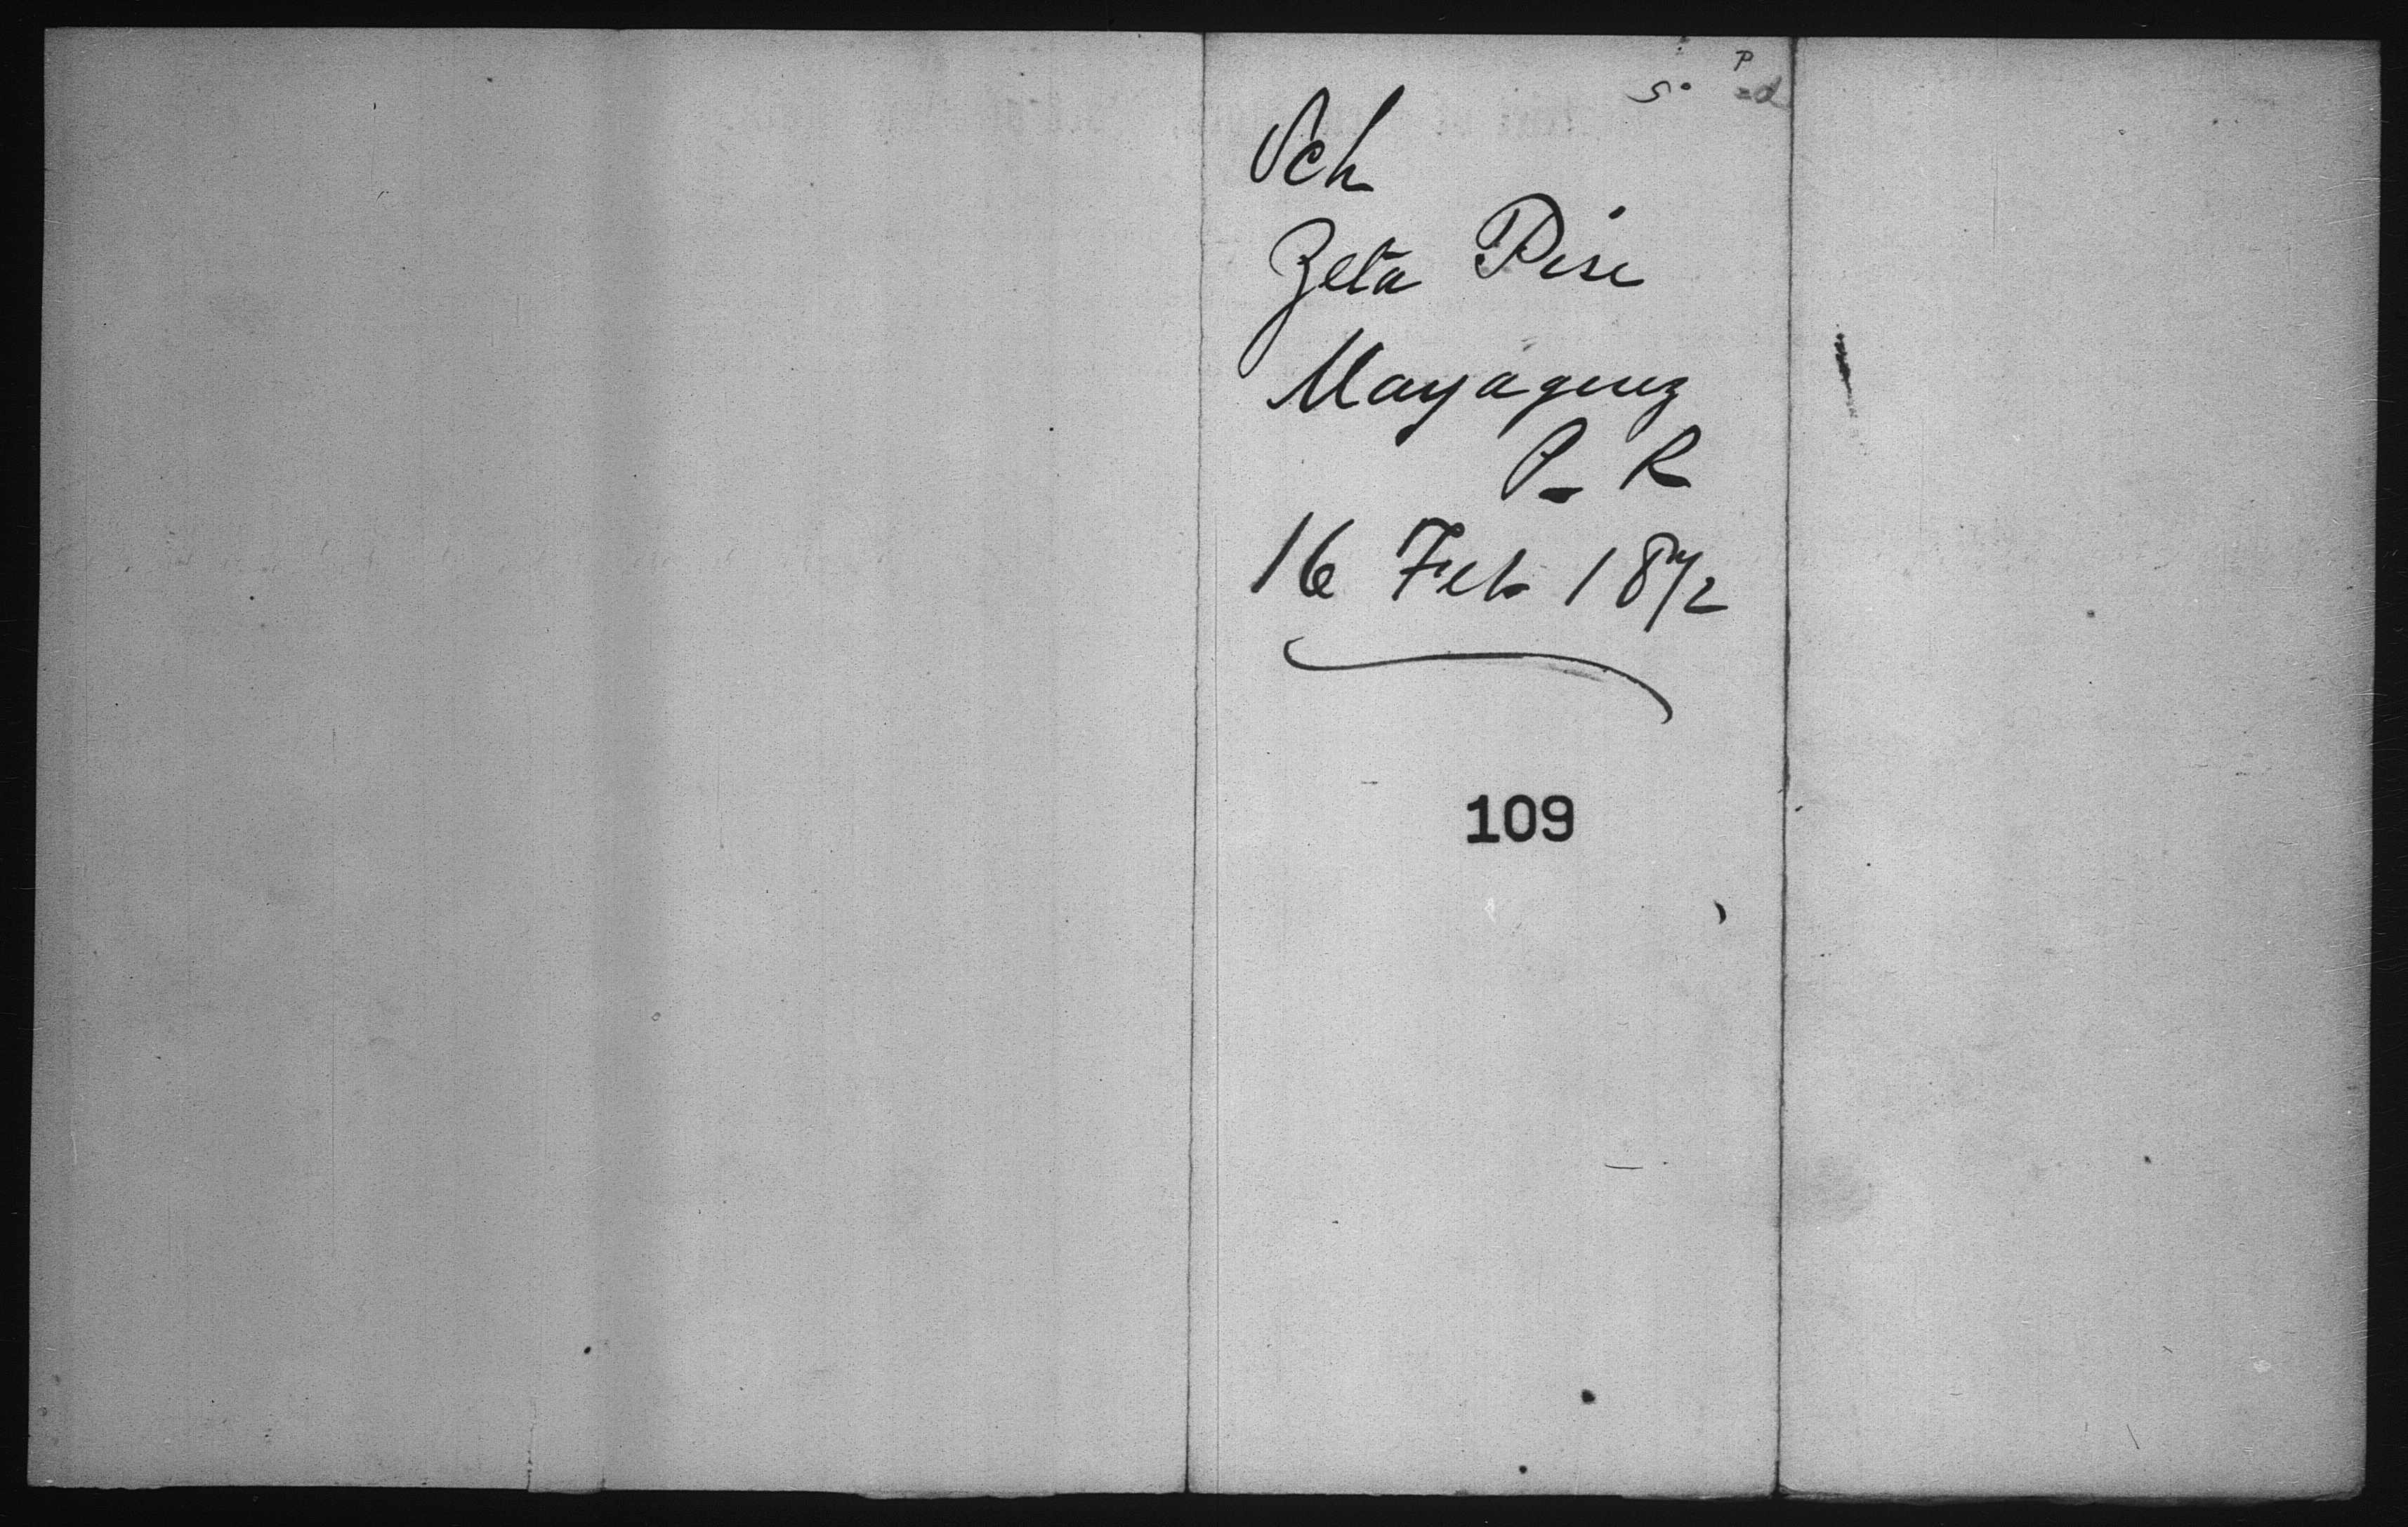 Sch
Zeta Psi
Mayaguez
P. R
16 Feb 1872
109